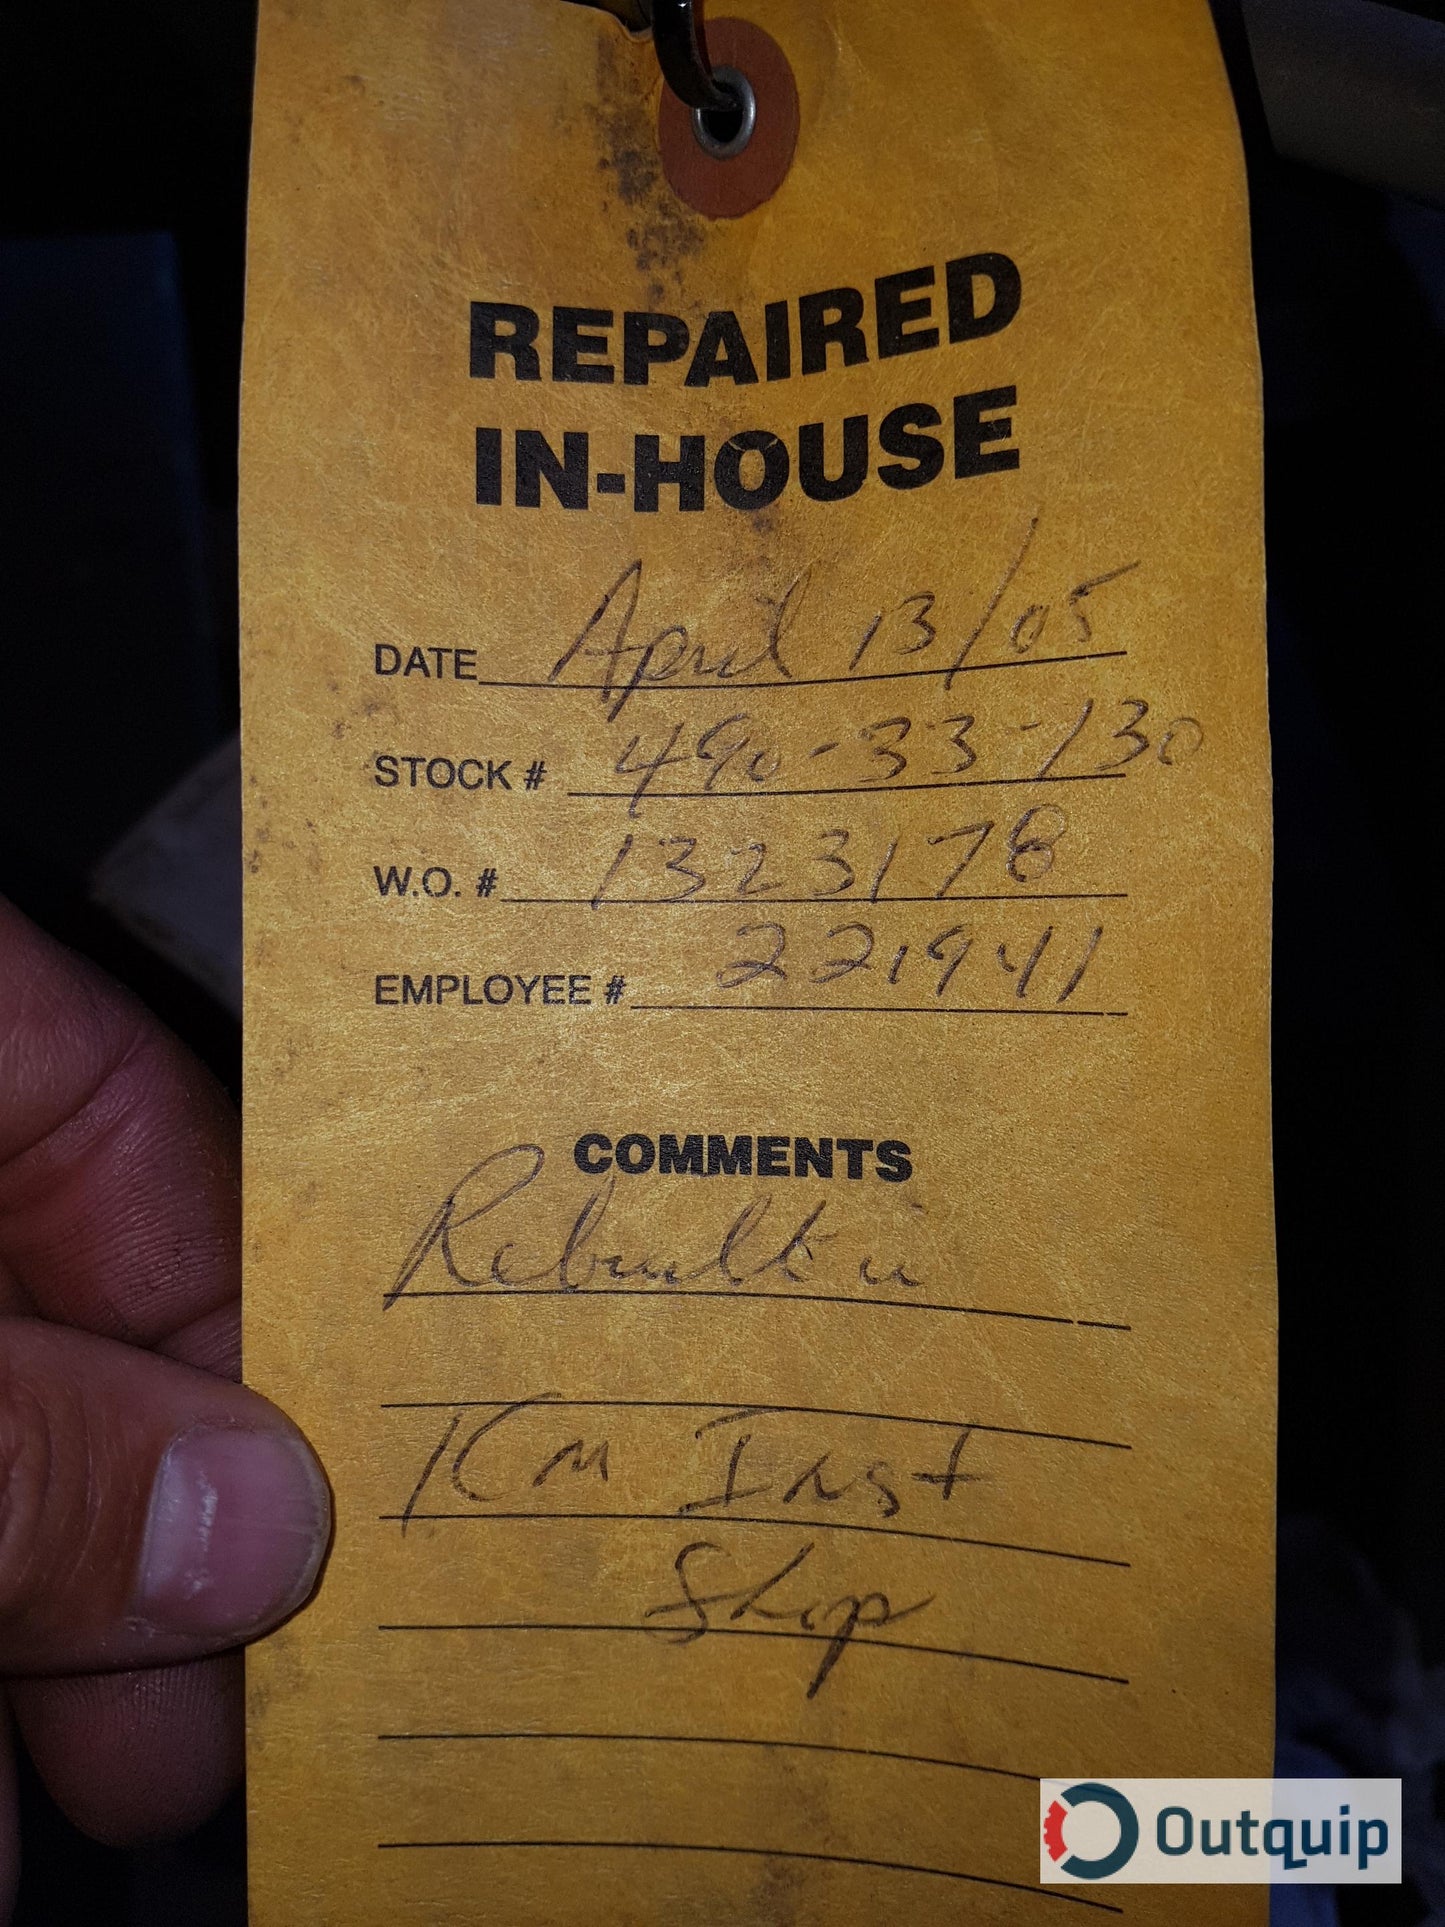 REPAIRED
IN-HOUSE
DATE April 13/05
STOCK # 490-33-130
W.O. # 1323178
EMPLOYEE # 221941
COMMENTS
Rebuilt in
Km Inst
Shop
Outquip